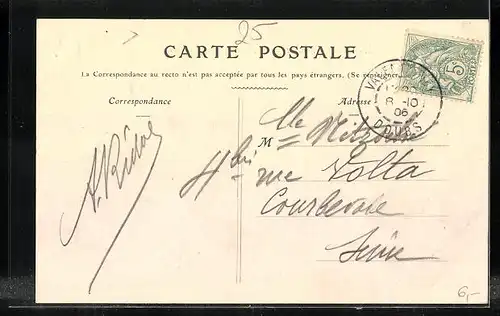 25
CARTE POSTALE
La Correspondance au recto n'est pas acceptée par tous les pays étrangers. (Se renseigner
Correspondance
Adresse
5
8 -10
06
DOUBS
M lle
4 bis rue Volta
Courbevoie
Seine
6,-